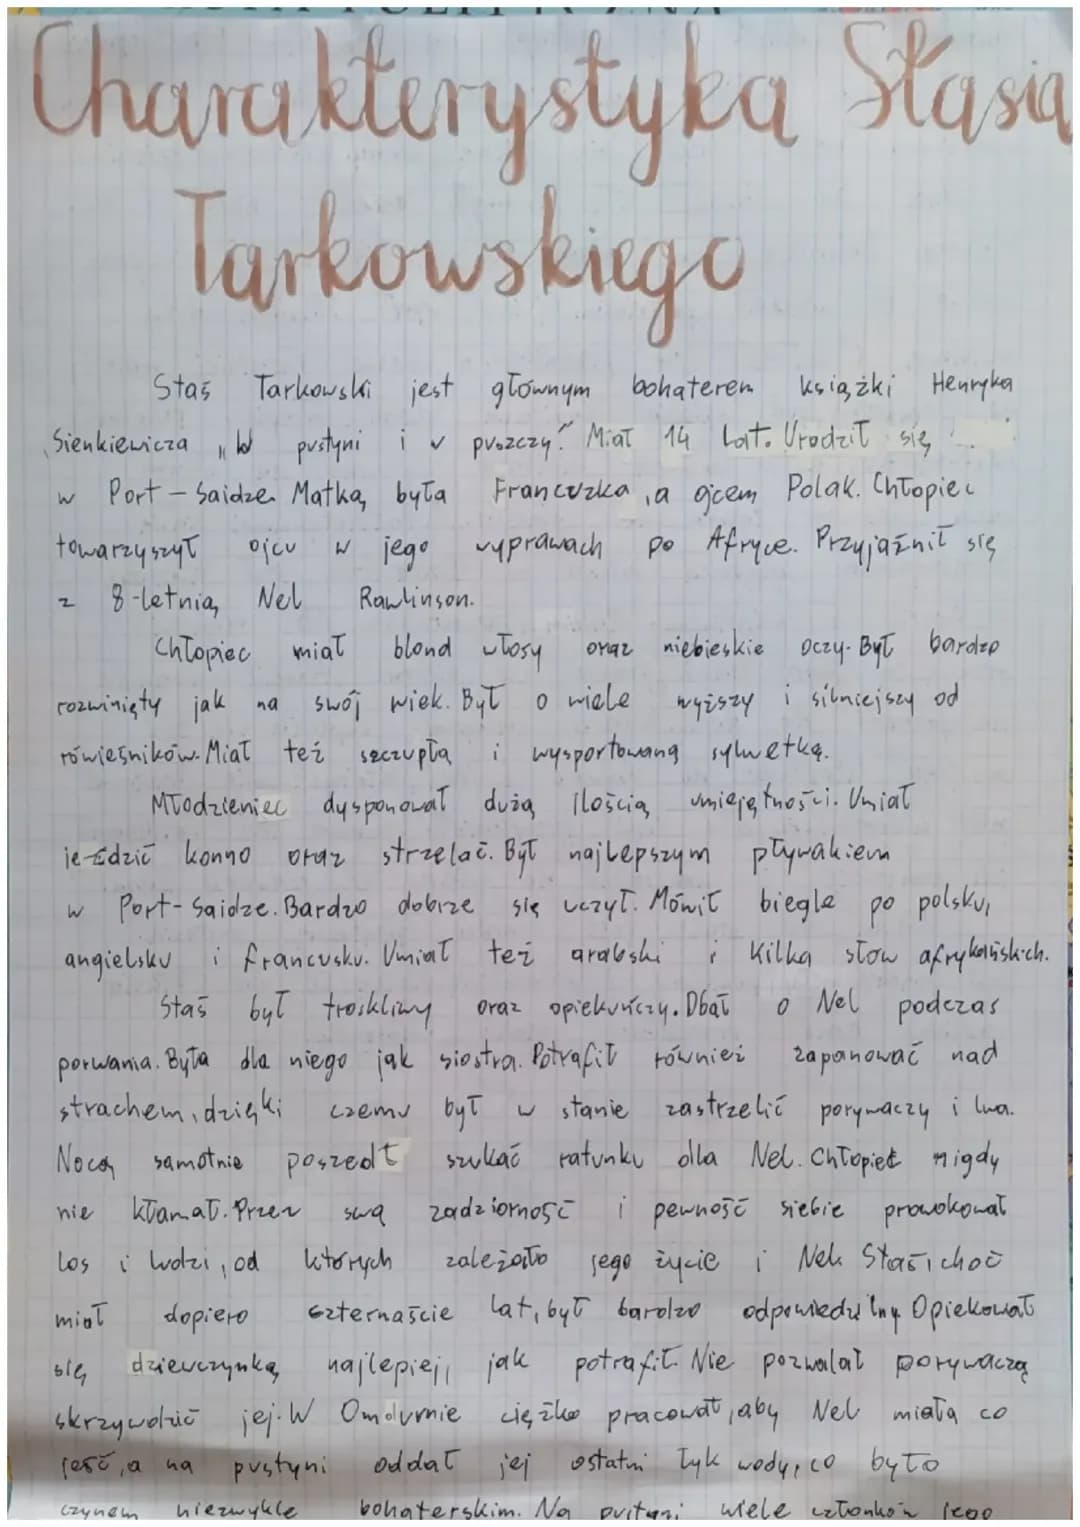 Charakterystyka Stasia
Tarkowskiego
Staś Tarkowski jest głównym bohaterem książki Henryka
Sienkiewicza „W pustyni i w puszczy". Miał 14 lat. Urodził się
w Port-Saidze. Matką była Francuzka, a ojcem Polak. Chłopiec
towarzyszył ojcu w jego wyprawach po Afryce. Przyjaźnił się
z 8-letnią Nel Rawlinson.
Chłopiec miał blond włosy oraz niebieskie oczy. Był bardzo
rozwinięty jak na swój wiek. Był o wiele wyższy i silniejszy od
rówieśników. Miał też szczupłą i wysportowaną sylwetkę.
Młodzieniec dysponował dużą ilością umiejętności. Umiał
jeździć konno oraz strzelać. Był najlepszym pływakiem
w Port-Saidze. Bardzo dobrze się uczył. Mówił biegle po polsku,
angielsku i francusku. Umiał też arabski i kilka słow afrykańskich.
Staś był troskliwy oraz opiekuńczy. Dbał o Nel podczas
porwania. Była dla niego jak siostra. Potrafił również zapanować nad
strachem, dzięki czemu był w stanie zastrzelić porywaczy i lwa.
Nocą samotnie poszedł szukać ratunku dla Nel. Chłopiec nigdy
nie kłamał. Przez swą zadziorność i pewność siebie prowokował
los i ludzi, od których zależało jego życie i Nel. Staś, choć
miał dopiero czternaście lat, był bardzo odpowiedzialny. Opiekował
się dziewczynką najlepiej, jak potrafił. Nie pozwalał porywaczą
skrzywdzić jej. W Omdurnie ciężko pracował, aby Nel miała co
jeść, a na pustyni oddał jej ostatni łyk wody, co było
czynem niezwykle bohaterskim. Na pustyni wiele członków jego